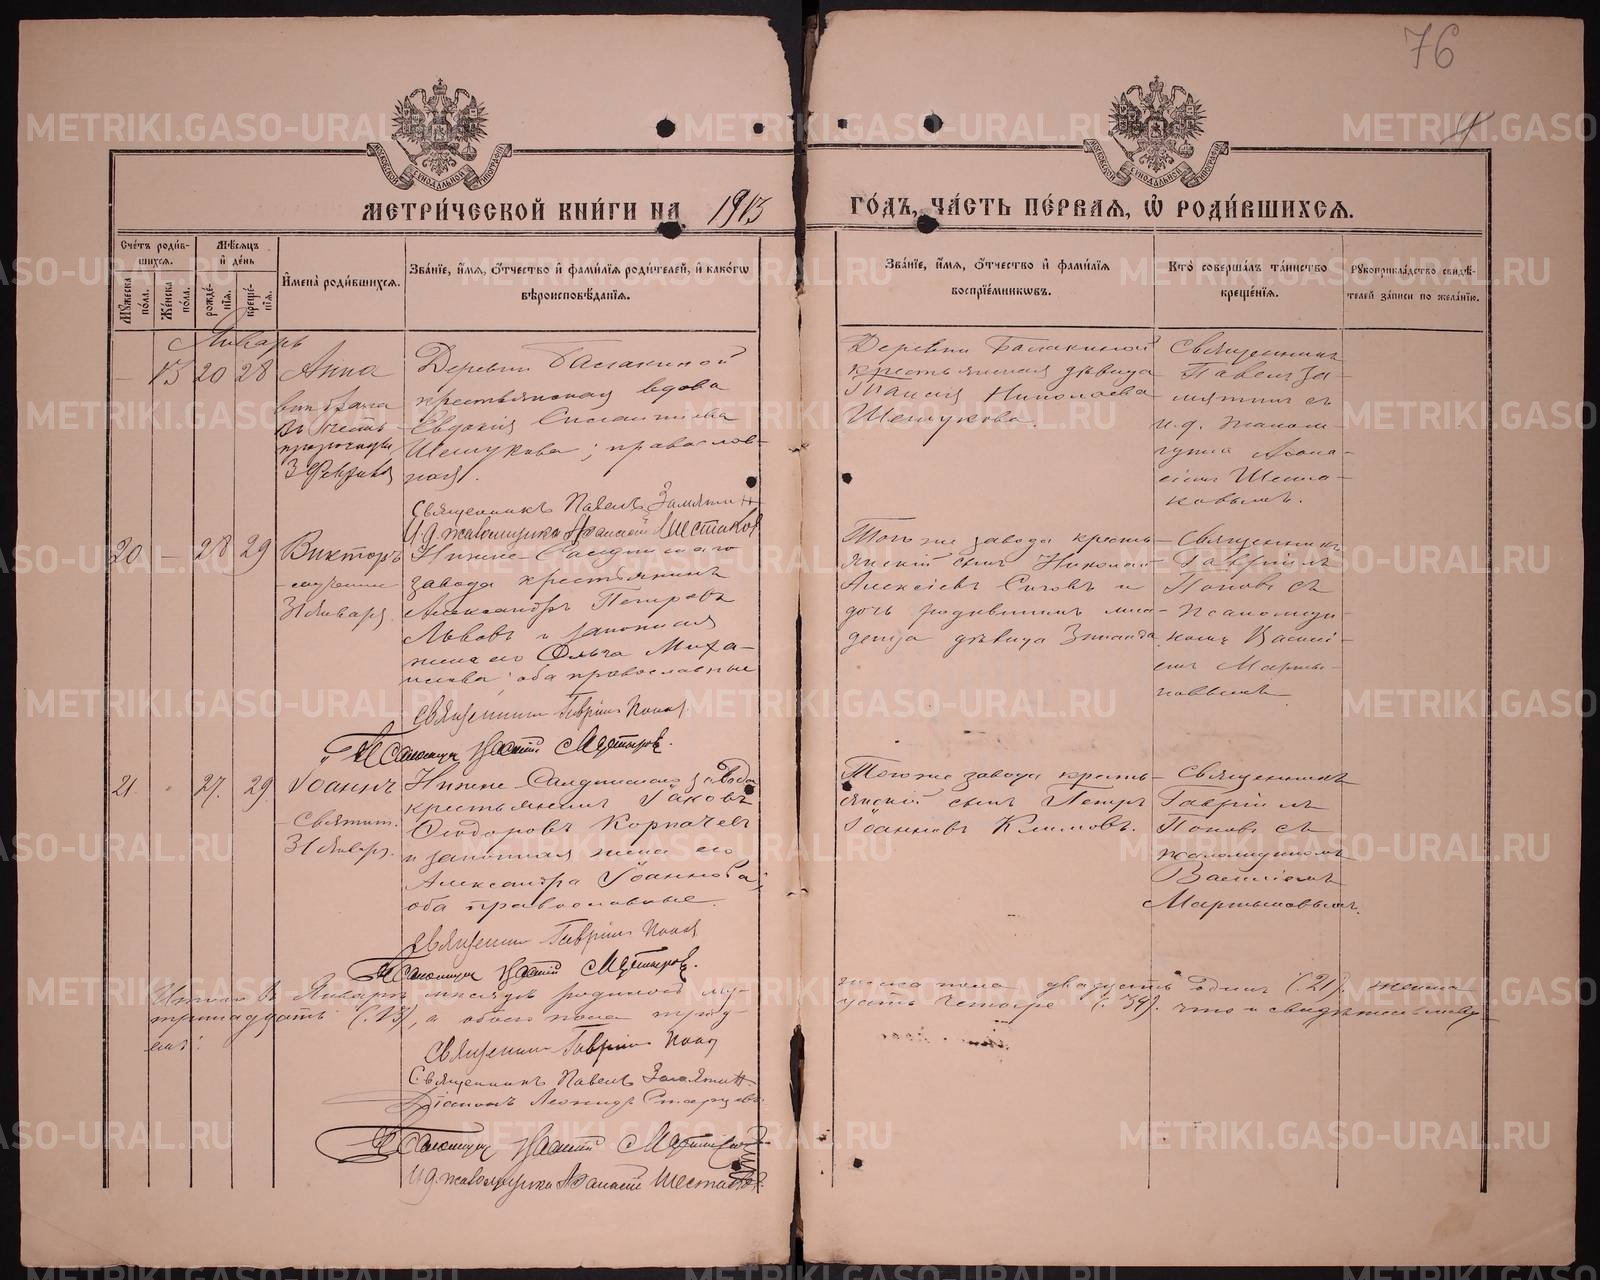 76
4
МЕТРИ́ЧЕСКОЙ КНИ́ГИ НА 1913 ГО́ДЪ, ЧА́СТЬ ПЕ́РВАЯ, Ѿ РОДИ́ВШИХСЯ.
Сче́тъ роди́в-
шихся.
Мѣ́сяцъ
и́ де́нь
Му́жеска по́ла.
Же́нска по́ла.
рожде́-
нія.
креще́-
нія.
И́мена̀ роди́вшихся.
Зва́ніе, и́мя, о́тчество и́ фами́лія роди́телей, и́ како́гѡ
вѣроисповѣ́данія.
Зва́ніе, и́мя, о́тчество и́ фами́лія
воспріе́мникѡвъ.
Кто̀ соверша́лъ та́инство
креще́нія.
Рукоприкла́дство свидѣ́-
телей за́писи по жела́нію.
Январь
— 13 20 28 Анна
въ честь
пророчицы
3 Февраля
Деревни Балакиной
крестьянская вдова
Евдокія
Шешукова; православ-
ная.
Священникъ Павелъ Замятин
И.д. псаломщика Аѳанасій Шестаков
Деревни Балакиной
крестьянская дѣвица
Таисія Николаева
Шешукова.
Священникъ
Павелъ За-
мятинъ съ
и.д. псалом-
щика Аѳана-
сіемъ Шеста-
ковымъ.
20 — 28 29 Викторъ
мученик
31 Января.
Нижне-Салдинскаго
завода крестьянинъ
Александръ Петровъ
Львовъ и законная
жена его Ольга Миха-
илова; оба православные
Священник Гавріил Попов
Псаломщик Василій Мартынов.
Того же завода кресть-
янскій сынъ Николай
Алексіевъ Сиговъ и
дочь родившимъ мла-
денца дѣвица Зинаида
Священникъ
Гавріилъ
Поповъ съ
псаломщи-
комъ Василі-
емъ Марты-
новымъ
21. - 27. 29. Іоаннъ
Святит.
31 Января.
Нижне-Салдинскаго завода
крестьянинъ Іаковъ
Ѳеодоровъ Корпачевъ
и законная жена его
Александра Іоаннова;
оба православные.
Священник Гавріил Попов
Псаломщик Василій Мартынов.
Того же завода кресть-
янскій сынъ Петръ
Іоанновъ Климовъ.
Священникъ
Гавріилъ
Поповъ съ
псаломщикомъ
Василіемъ
Мартыновымъ.
Итого въ Январѣ мѣсяцѣ родилось му-
жеска пола двадцать одинъ (21), женска
тринадцать (13), а обоего пола трид-
цать четыре (34). что и свидѣтельству-
емъ:
Священник Гавріил Попов
Священникъ Павелъ Замятин
Діаконъ Леонидъ Старцевъ
Псаломщик Василій Мартынов
И.д. псаломщика Аѳанасій Шестаков.
METRIKI.GASO-URAL.RU